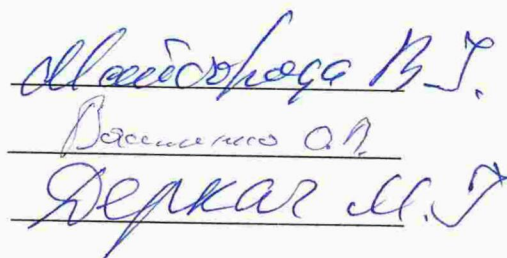 Майборода В. Г.
Василенко О.П.
Деркач М. Г